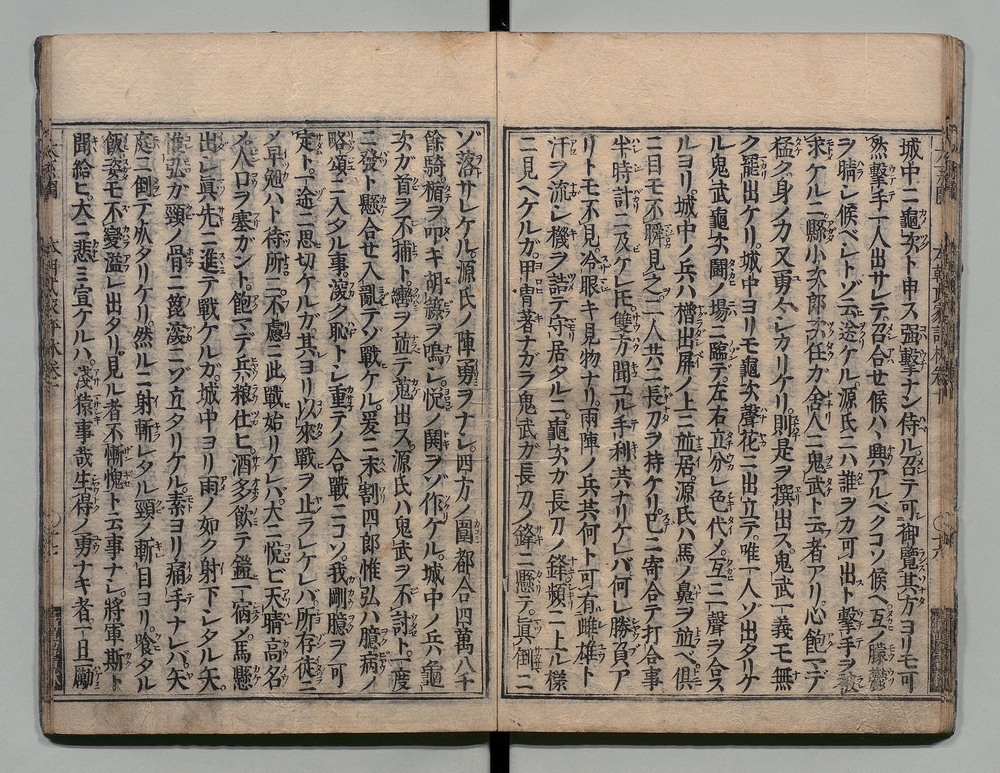 城中ニ龜次ト申ス强擊ナン侍ル召テ可御覽其方ヨリモ可
然擊手一人出サレテ召合セ候ハヽ興アルベクコソ候ヘ互ノ朦氣
ヲ晴シ候ベシトゾ云送ケル源氏ニハ誰ヲカ可出ト擊手ヲ被
求ケルニ縣小次郎次任ガ舍人ニ鬼武ト云者アリ心飽マデ
猛ク身ノ力又勇々シカリケリ則是ヲ撰出ス鬼武一義モ無
ク罷出ケリ城中ヨリモ龜次聲花ニ出立テ唯一人ゾ出タリケ
ル鬼武龜次鬪ノ場ニ臨テ左右立分レ色代メ互ニ聲ヲ合ス
ルヨリ城中ノ兵ハ櫓出屏ノ上ニ並居源氏ハ馬ノ鼻ヲ並ベ俱
ニ目モ不瞬見之二人共ニ長刀ヲ持ケリ已ニ寄合テ打合事
半時計ニ及ケレ𪜈雙方聞ユル手利共ナリケレバ何レ勝負ア
リトモ不見冷眼キ見物ナリ兩陣ノ兵共何ト可有雌雄ト
汗ヲ流シ機ヲ詰テ守居タルニ龜次カ長刀ノ鋒頻ニ上ル樣
ニ見ヘケルガ甲冑著ナガラ鬼武ガ長刀ノ鋒ニ懸テ眞倒ニ
ゾ落サレケル源氏ノ陣勇ヲナシ四方ノ圍都合四萬八千
餘騎楯ヲ叩キ胡籙ヲ鳴シ悅ノ鬨ヲゾ作ケル城中ノ兵龜
次ガ首ヲ不捕ト轡ヲ並テ蒐出ス源氏ハ鬼武ヲ不討ト一度
ニ發ト懸合セ入亂テゾ戰ケル爰ニ末割四郎惟弘ハ臆病ノ
略頌ニ入タル事深ク恥トシ重デノ合戰ニコソ我剛臆ヲ可
定ト一途ニ思切ケルガ其ヨリ以來戰ヲ止ラレケレバ所存徒ニ
メ早勉ハト待所ニ不慮ニ此戰始リケレバ大ニ悅ビ天晴高名
メ人ロヲ塞ガント飽マデ兵粮仕ヒ酒多飮テ鎧一宿メ馬懸
出シ眞先ニ進テ戰ケルガ城中ヨリ雨ノ如ク射下シタル矢
惟弘ガ頸ノ骨ニ箆深ニゾ立タリケル素ヨリ痛手ナレバ矢
庭ニ倒テ臥タリケリ然ルニ射斬レタル頸ノ斬目ヨリ喰タル
飯姿モ不變溢レ出タリ見ル者不慚愧ト云事ナシ將軍斯ト
聞給ヒ大ニ悲ミ宣ケルハ淺猿事哉生得ノ勇ナキ者一旦勵